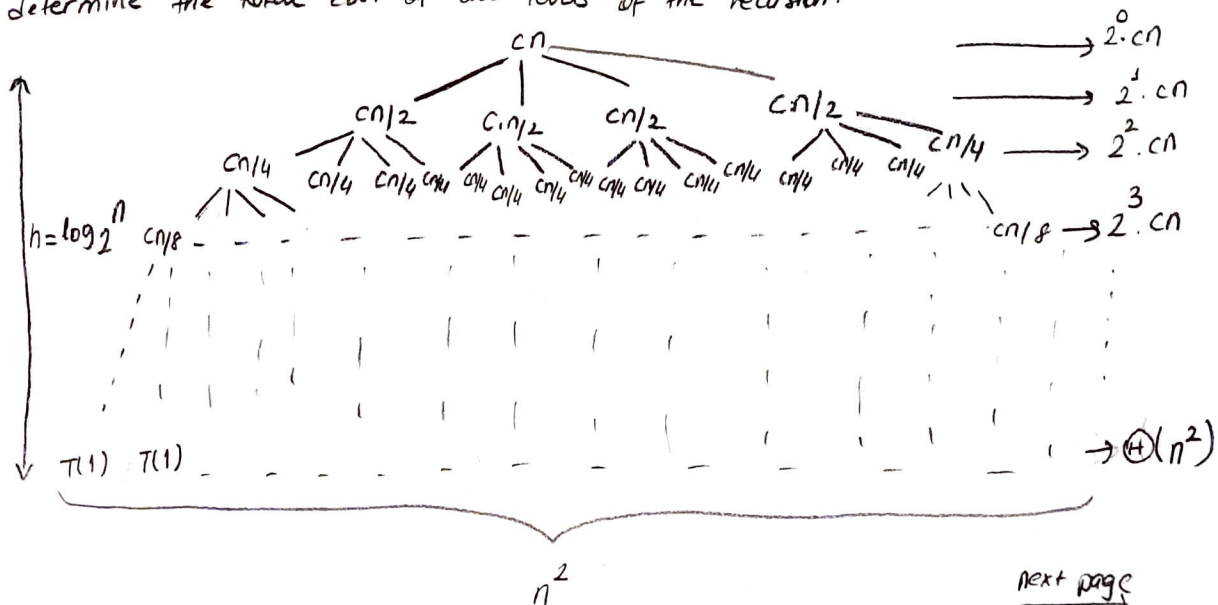 determine the total cost of all levels of the recursion.
cn → 2⁰.cn
cn/2 C.n/2 cn/2 cn/2 → 2¹.cn
cn/4 cn/4 cn/4 cn/4 cn/4 cn/4 cn/4 cn/4 cn/4 cn/4 cn/4 cn/4 cn/4 cn/4 cn/4 cn/4 → 2².cn
h=log2ⁿ cn/8 - - - - - - - - - - - cn/8 → 2³.cn
T(1) T(1) - - - - - - - - - → Θ(n²)
n²
next page